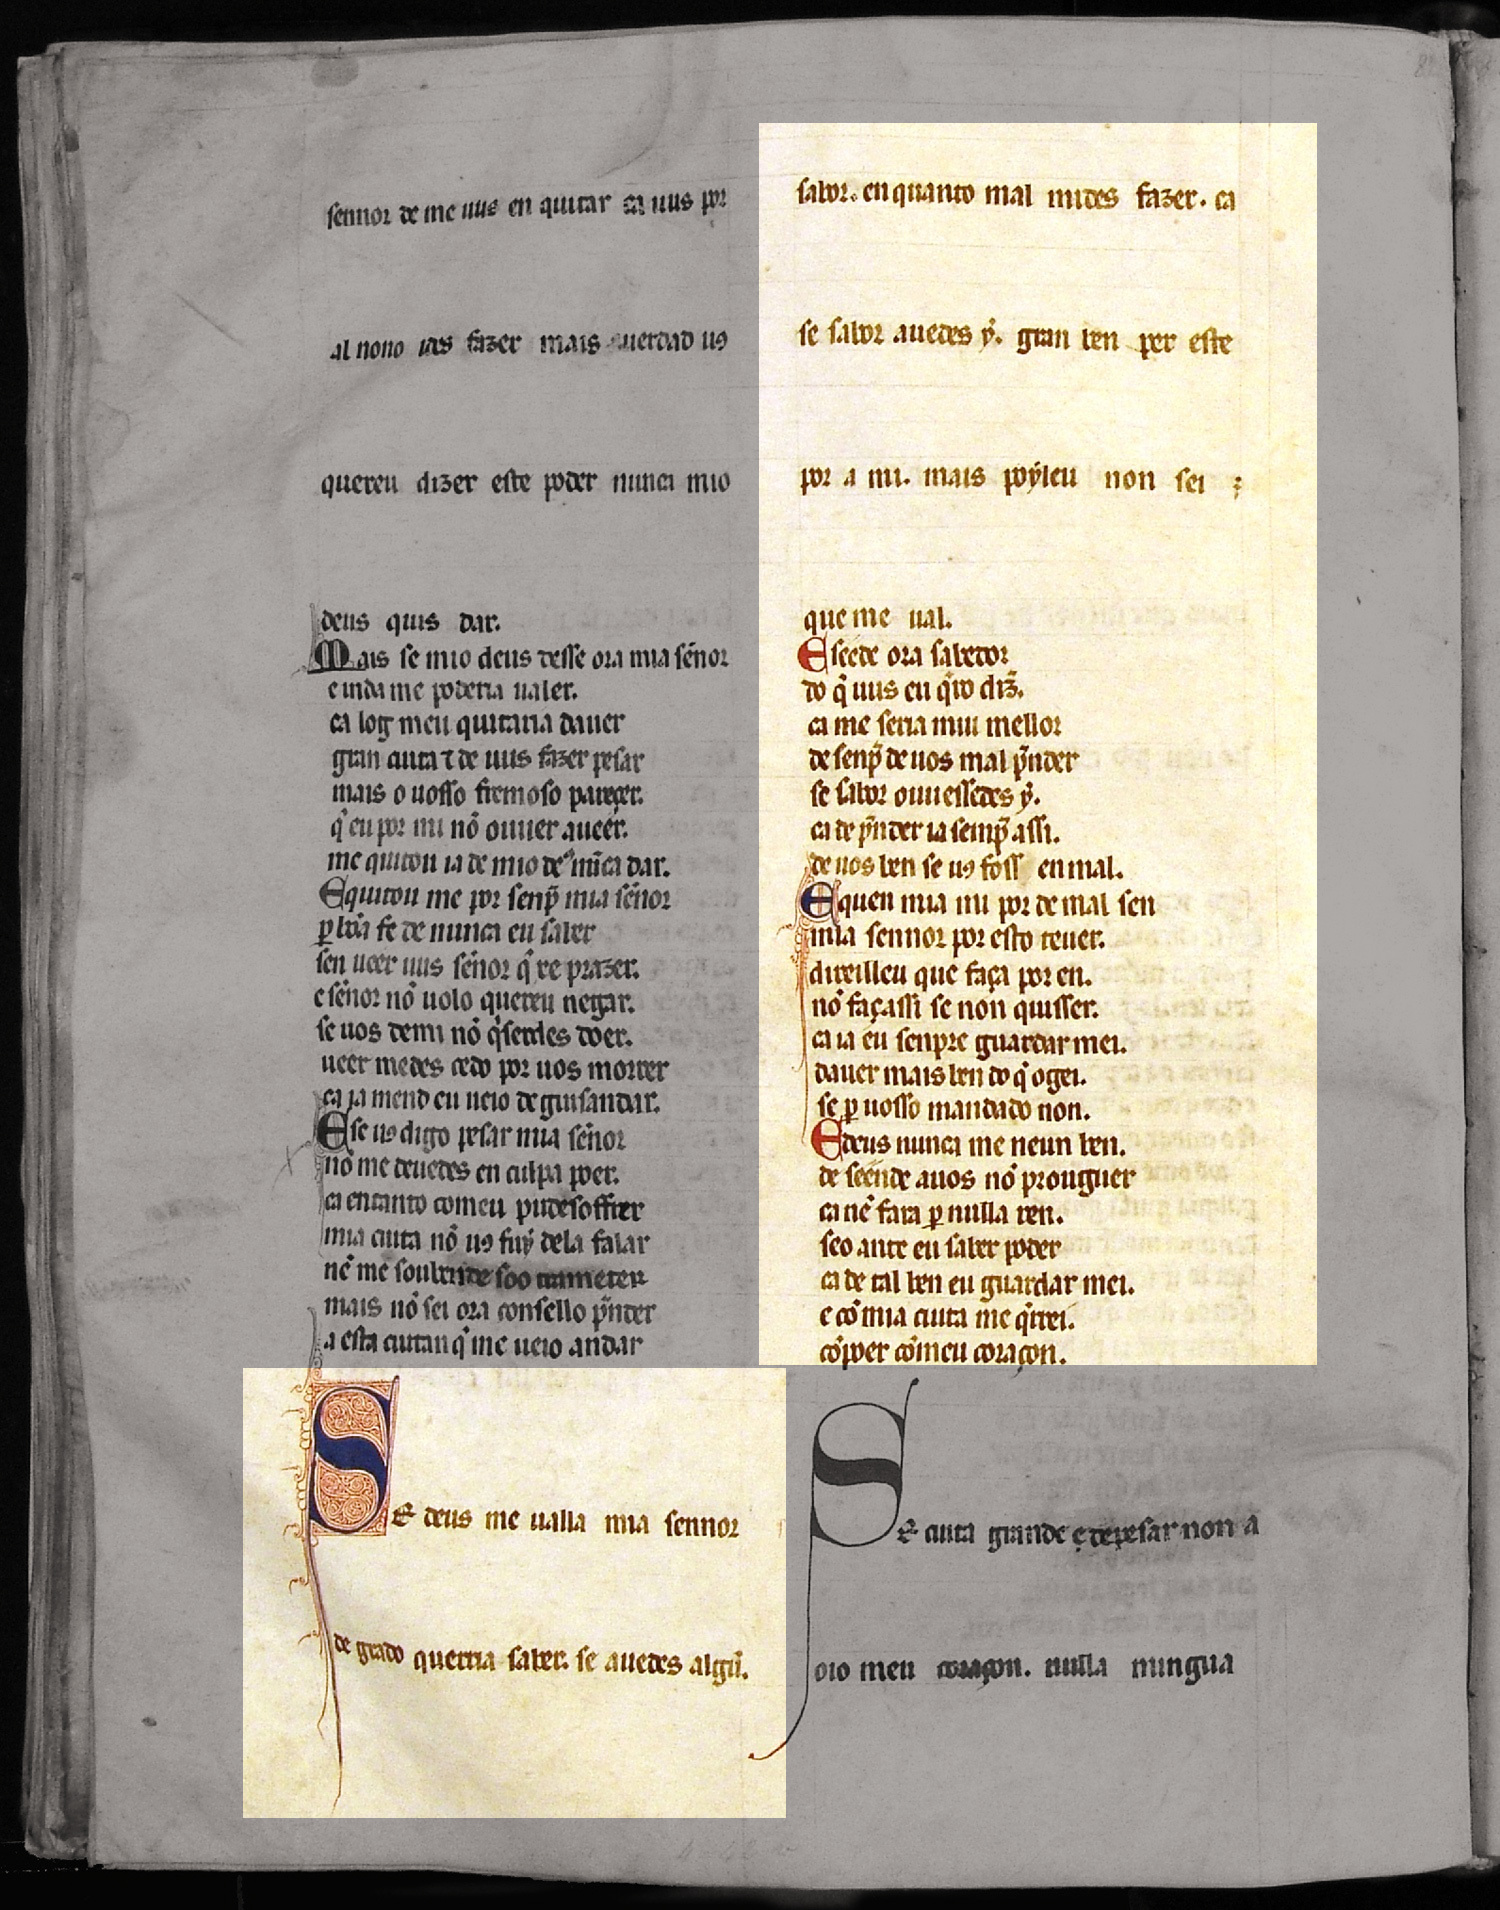 sennor de me uus en quitar ca uus por
al nono ides fazer mais uerdad us
quereu dizer este poder nunca mio
deus quis dar.
Mais se mio deus desse ora mia sẽnor
e inda me poderia ualer.
ca log meu quitaria dauer
gran cuita ⁊ de uus fazer pesar
mais o uosso fremoso pareçer.
q̇ eu por mi nõ ouuer aueer.
me quitou ia de mio de⁹ nũca dar.
E quitou me por senp̃ mia sẽnor
ꝑ bõa fe de nunca eu saber
sen ueer uus sẽnor q̇ xe prazer.
e sẽnor nõ uolo quereu negar.
se uos demi nõ q̇serdes doer.
ueer medes cedo por uos morrer
ca ia mend eu ueio de guisandar.
E se us digo pesar mia sẽnor
nõ me deuedes en culpa poer.
ca entanto comeu pudesoffrer
mia cuita nõ us fuy dela falar
nẽ me soub ende soo trameter
mais nõ sei ora consello p̃nder
a esta cuitan q̇ me ueio andar
SE deus me ualla mia sennor
de grado querria saber. se auedes algũ.
sabor. en quanto mal mides fazer. ca
se sabor auedes ẏ. gran ben per este
por a mi. mais poẏleu non sei
que me ual.
E seede ora sabedor
do q̇ uus eu q̇ro diz̃.
ca me seria mui mellor
de senp̃ de uos mal p̃nder
se sabor ouuessedes ẏ.
ca de p̃nder ia semp̃ assi.
de uos ben se us foss en mal.
E quen mia mi por de mal sen
mia sennor por esto teuer.
direilleu que faça por en.
nõ façassi se non quisser.
ca ia eu senpre guardar mei.
dauer mais ben do q̇ ogei.
se ꝑ uosso mandado non.
E deus nunca me neun ben.
de seende auos nõ prouguer
ca nẽ fara ꝑ nulla ren.
seo ante eu saber poder
ca de tal ben eu guardar mei.
e cõ mia cuita me q̇rrei.
cõpoer cõmeu coraçon.
SE cuita grande e de pesar non a
oio meu coraçon. nulla mingua